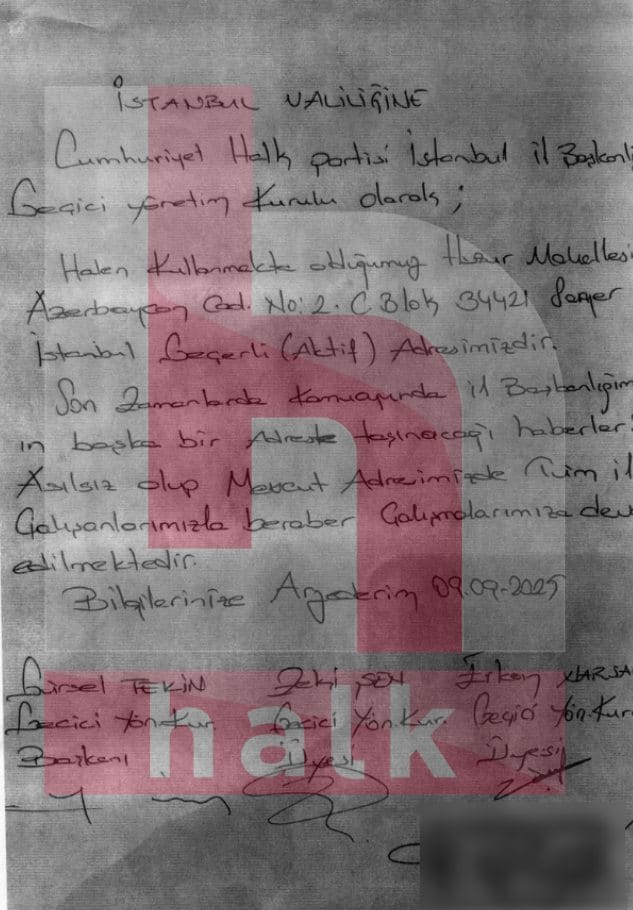 İSTANBUL VALİLİĞİNE
Cumhuriyet Halk partisi İstanbul il Başkanlı
Geçici yönetim Kurulu olarak;
Halen Kullanmakta olduğumuz Huzur Mahallesi
Azerbaycan Cad. No: 2. C Blok 34421 Sarıyer
İstanbul Geçerli (Aktif) Adresimizdir.
Son Zamanlarda Kamuoyunda il Başkanlığım
ın başka bir Adrese taşınacağı haberler
Asılsız olup Mevcut Adresimizde Tüm il
Çalışanlarımızla beraber Çalışmalarımıza dev
edilmektedir.
Bilgilerinize Arzederim 09.09-2025
Gürsel TEKİN Zeki ŞEN Erkan NARSA
Geçici Yön.Kur. Geçici Yön.Kur. Geçici Yön.Kur
Başkanı Üyesi Üyesi
h
halk